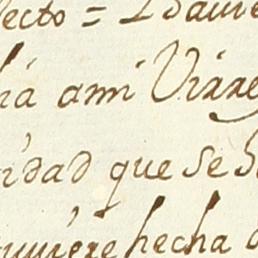 fecto = I daure
há a mi Virre
idad que se h
uviere hecha